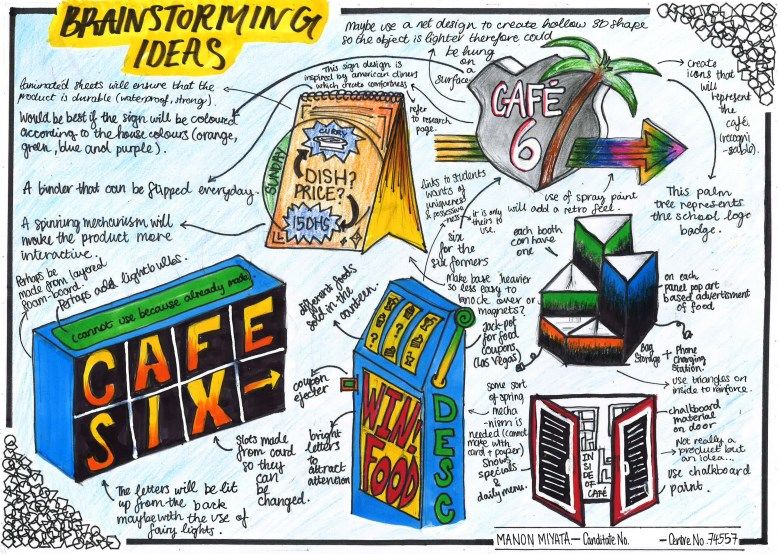 BRAINSTORMING
IDEAS
Maybe use a net design to create hollow 3D shape
so the object is lighter therefore could
be hung
on a
surface
This sign design is
inspired by american diners
which create comfortness
refer
to research
page.
laminated sheets will ensure that the
product is durable (waterproof, strong)
Would be best if the sign will be coloured
according to the house colours (orange,
green, blue and purple).
A binder that can be flipped everyday.
A spinning mechanism will
make the product more
interactive.
SUNDAY
CURRY
DISH?
PRICE?
15DHS
CAFÉ
6
Create
icons that
will
represent
the
café.
(recogni
-sable).
This palm
tree represents
the school logo
badge.
use of spray paint
will add a retro feel.
links to students
wants of
uniqueness
& possessive
ness
it is only
theirs to
use.
Six
for the
six formers
Perhaps be
made from layered
foam-board.
Perhaps add lightbulbs.
(cannot use because already made)
CAFE
SIX
The letters will be lit
up from the back
maybe with the use of
fairy lights.
Slots made
from card so
they can
be
changed.
different foods
sold in the
canteen
coupon
ejecter
bright
letters
to
attract
attention
WIN!
FOOD
DESC
Make base heavier
so less easy to
knock over or
magnets?
Jack-pot
for food
coupons
(Las Vegas)
some sort
of spring
mecha
-nism is
needed (cannot
make with
card + paper)
Shows
specials
&
daily menu.
each booth
can have
one
on each
panel pop art
based advertisment
of food
Bag
Storage
+ Phone
Charging
Station.
use triangles on
inside to reinforce.
chalkboard
material on
door
Not really a
product but
an idea...
use chalkboard
paint.
IN
SIDE
OF
CAFÉ
MANON MIYATA - Canditate No. - Centre No. 74557